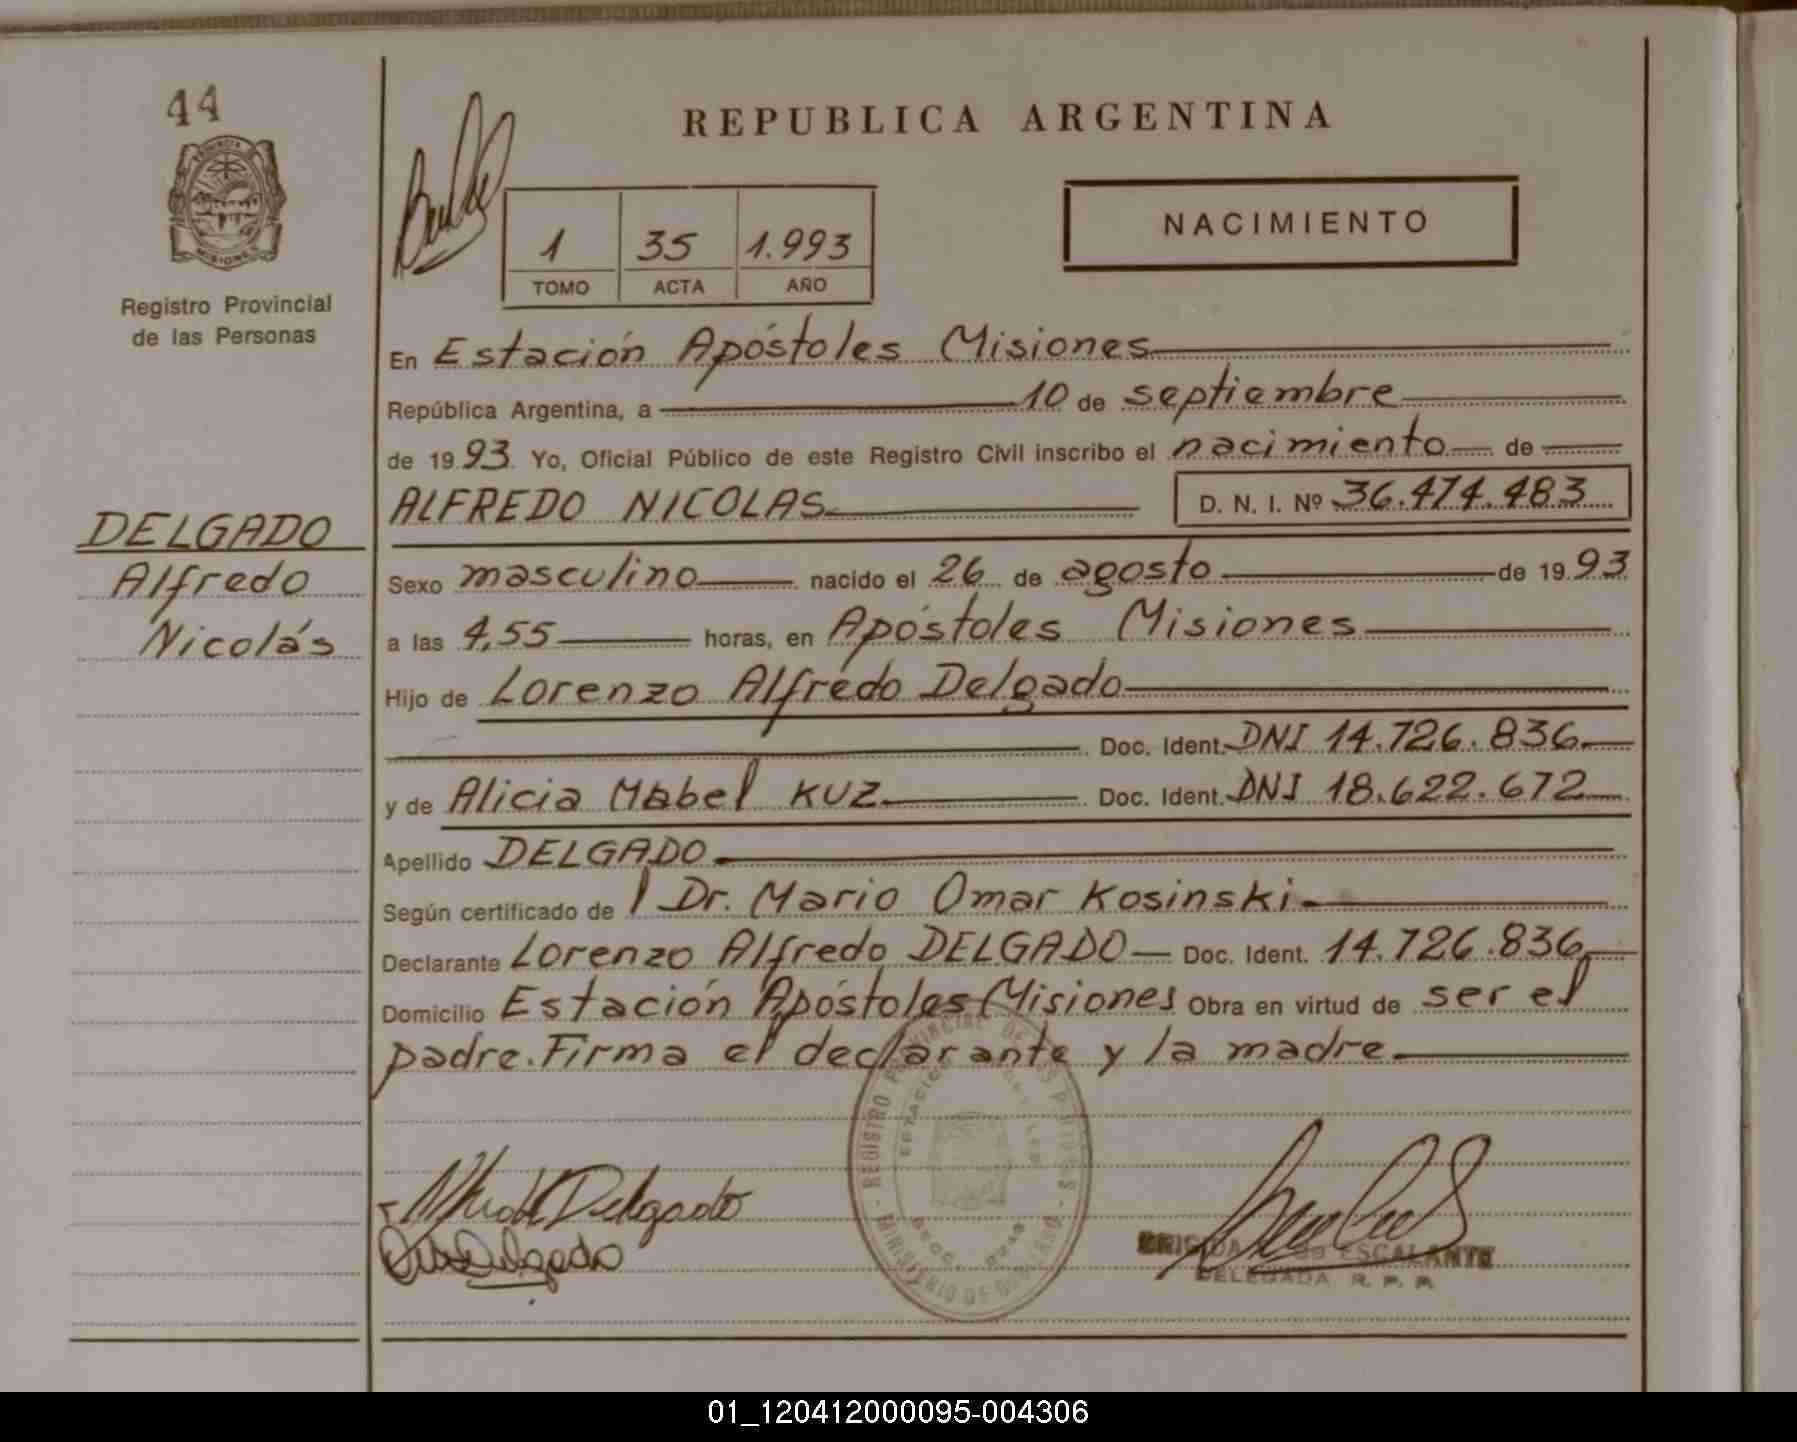 44
PROVINCIA
MISIONES
Registro Provincial
de las Personas
DELGADO
Alfredo
Nicolás
REPUBLICA ARGENTINA
NACIMIENTO
1 35 1.993
TOMO ACTA AÑO
En Estación Apóstoles Misiones
República Argentina, a 10 de septiembre
de 1993. Yo, Oficial Público de este Registro Civil inscribo el nacimiento de
ALFREDO NICOLAS D. N. I. Nº 36.474.483
Sexo masculino nacido el 26 de agosto de 1993
a las 4,55 horas, en Apóstoles Misiones
Hijo de Lorenzo Alfredo Delgado
Doc. Ident. DNI 14.726.836
y de Alicia Mabel KUZ Doc. Ident. DNI 18.622.672
Apellido DELGADO
Según certificado de l Dr. Mario Omar Kosinski
Declarante Lorenzo Alfredo DELGADO Doc. Ident. 14.726.836
Domicilio Estación Apóstoles Misiones Obra en virtud de ser el
padre. Firma el declarante y la madre
Delgado
Delgado
ESCALANTE
DELEGADA R. P. P.
01_120412000095-004306